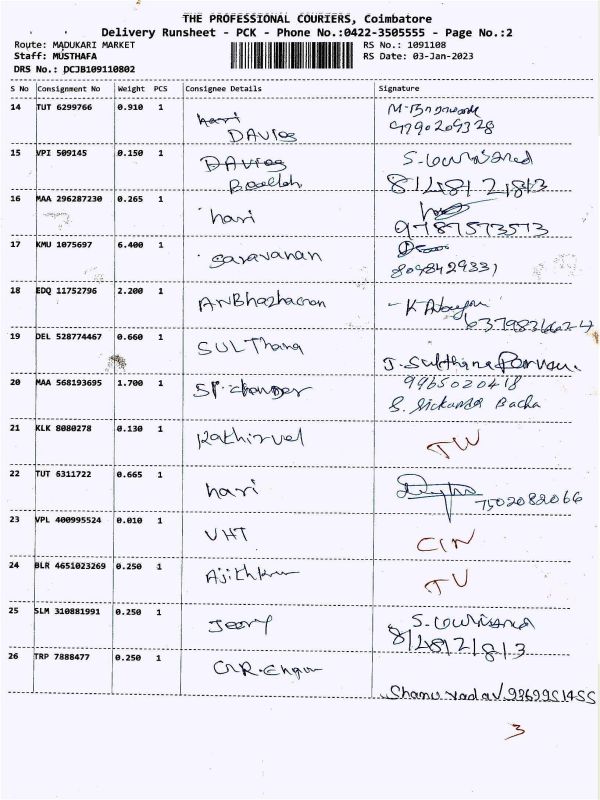 THE PROFESSIONAL COURIERS, Coimbatore
Delivery Runsheet - PCK - Phone No.:0422-3505555 - Page No.:2
Route: MADUKARI MARKET RS No.: 1091108
Staff: MUSTHAFA RS Date: 03-Jan-2023
DRS No.: DCJB109110802
S No Consignment No Weight PCS Consignee Details Signature
14 TUT 6299766 0.910 1 hari
DAVIes 9790209328
15 VPI 509145 0.150 1 DAVies S.
8148121813
16 MAA 296287230 0.265 1 hari
9787573573
17 KMU 1075697 6.400 1 saravanan
8098429331
18 EDQ 11752796 2.200 1
19 DEL 528774467 0.660 1 SULThana
J. Sulthina
20 MAA 568193695 1.700 1 9965020418
S. Bacha
21 KLK 8080278 0.130 1 Kathirvel
22 TUT 6311722 0.665 1 hari
7502082066
23 VPL 400995524 0.010 1 VHT CIN
24 BLR 4651023269 0.250 1
25 SLM 310881991 0.250 1 S.
8148121813
26 TRP 7888477 0.250 1
Shanu yadav 9869951455
3